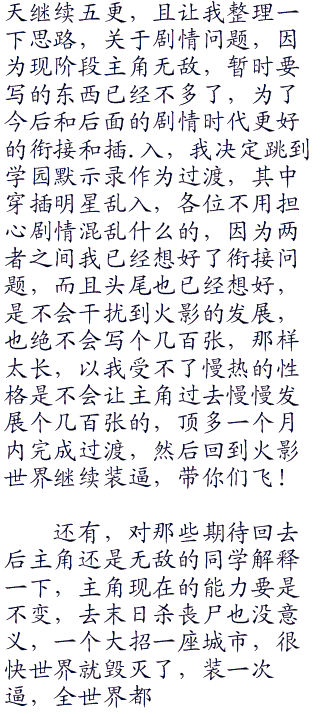 天继续五更，且让我整理一
下思路，关于剧情问题，因
为现阶段主角无敌，暂时要
写的东西已经不多了，为了
今后和后面的剧情时代更好
的衔接和插.入，我决定跳到
学园默示录作为过渡，其中
穿插明星乱入，各位不用担
心剧情混乱什么的，因为两
者之间我已经想好了衔接问
题，而且头尾也已经想好，
是不会干扰到火影的发展，
也绝不会写个几百张，那样
太长，以我受不了慢热的性
格是不会让主角过去慢慢发
展个几百张的，顶多一个月
内完成过渡，然后回到火影
世界继续装逼，带你们飞！
还有，对那些期待回去
后主角还是无敌的同学解释
一下，主角现在的能力要是
不变，去末日杀丧尸也没意
义，一个大招一座城市，很
快世界就毁灭了，装一次
逼，全世界都